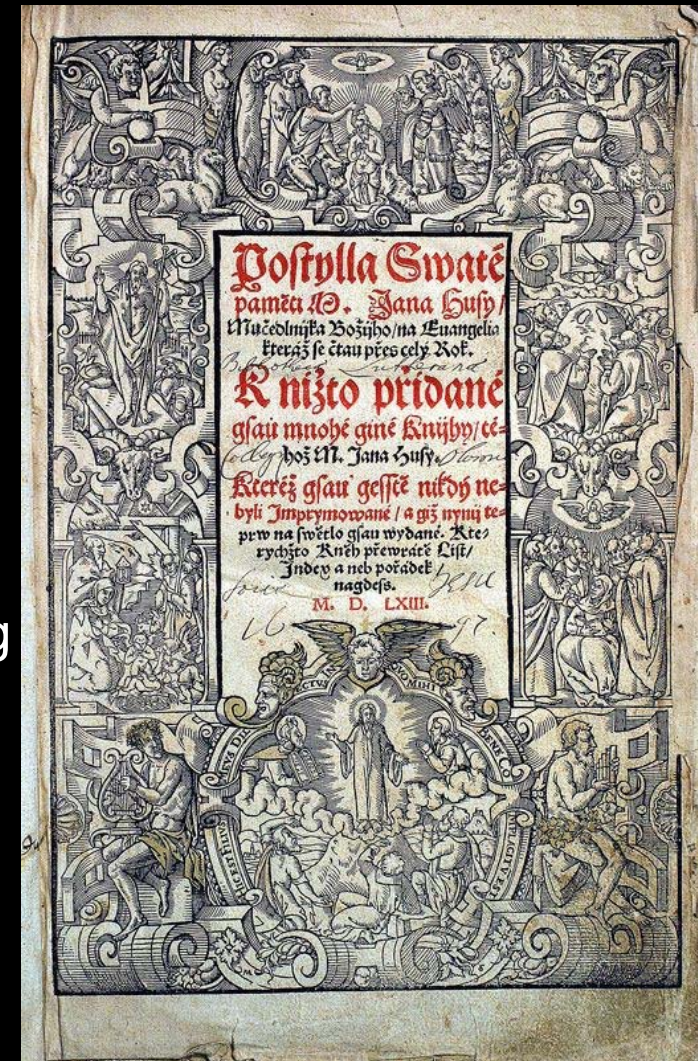 Postylla Swaté
paměti M. Jana Husy /
Mučedlnijka Božijho / na Euangelia
kteráž se čtau přes celý Rok.
K nižto přidané
gsau mnohé giné Knijhy / té-
hož M. Jana Husy.
Kteréž gsau gesstě nikdy ne-
byli Imprymowané / a giž nynij te-
prw na swětlo gsau wydané. Kte-
rychžto Kněh přewratě List /
Index a neb pořádek
nagdess.
M. D. LXIII.
16 97.
HIC EST FILIVS DILECTVS IN QVO MIHI BENE CO MPLACITVM EST
g